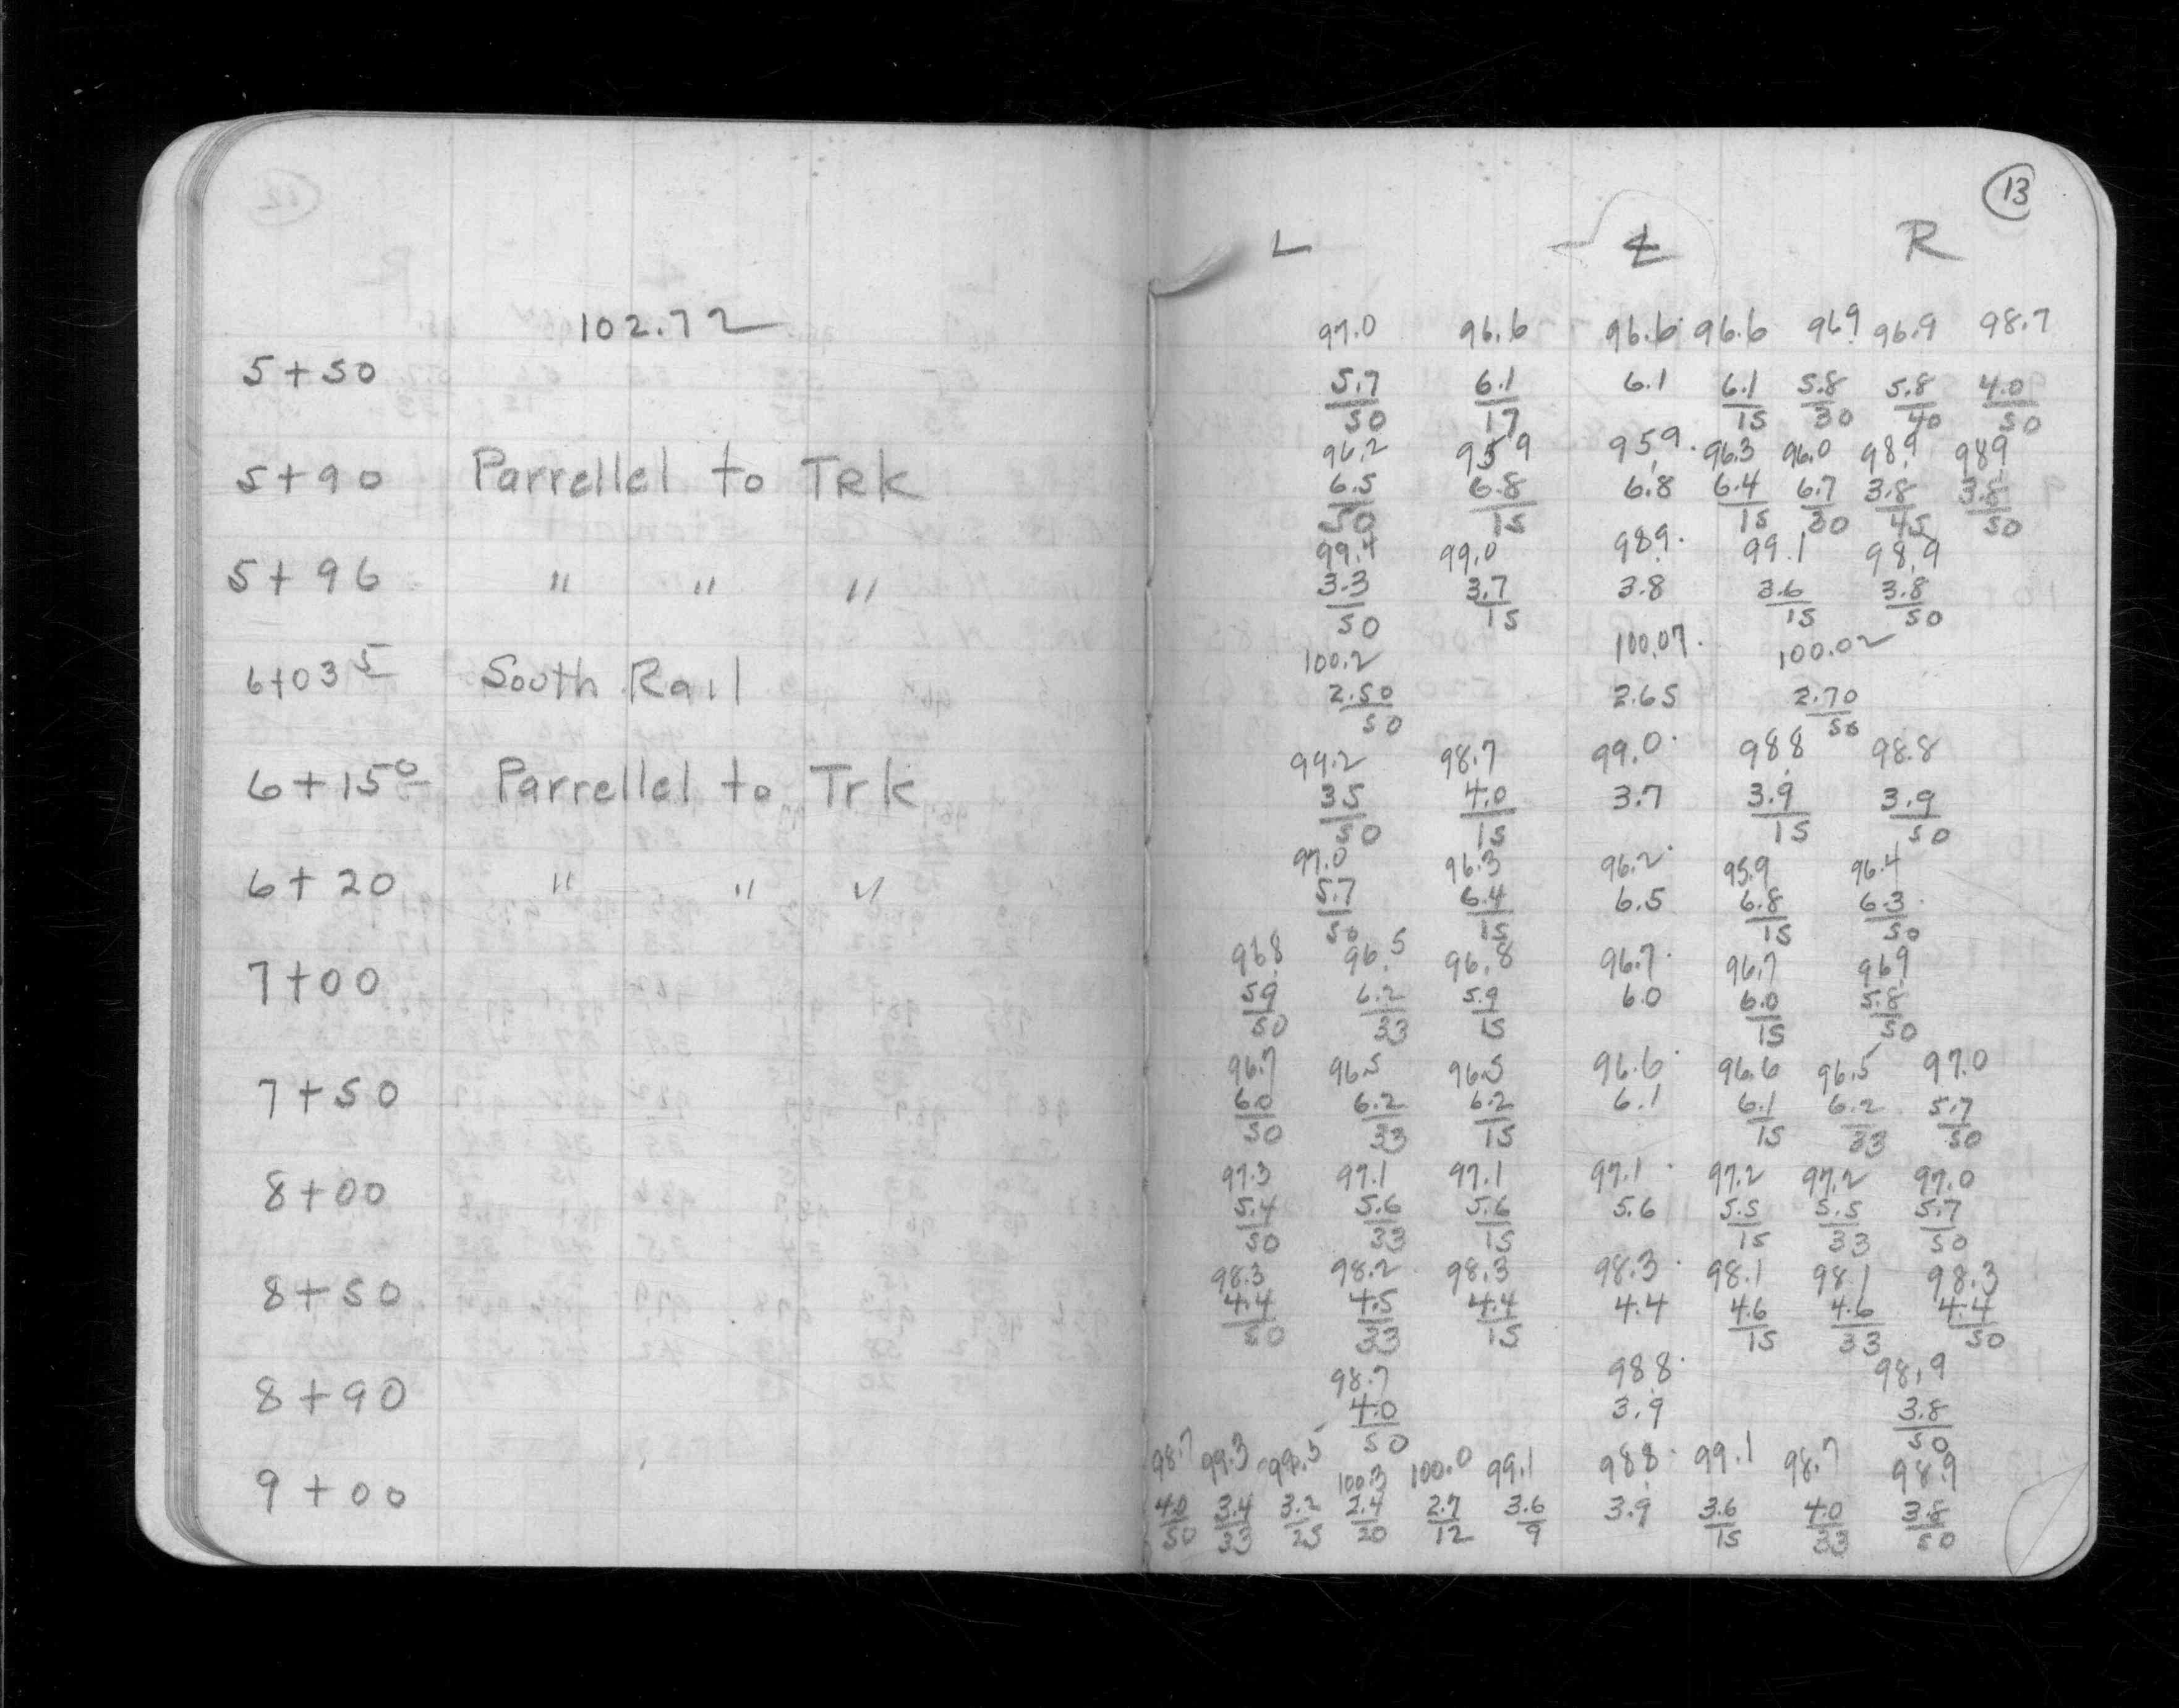 13
L ℄ R
102.72
97.0 96.6 96.6 96.6 96.9 96.9 98.7
5+50
5.7/50 6.1/17 6.1 6.1/15 5.8/30 5.8/40 4.0/50
96.2 95.9 95.9 96.3 96.0 98.9 98.9
5+90 Parrellel to TRK
6.5/50 6.8/15 6.8 6.4/15 6.7/30 3.8/45 3.8/50
99.4 99.0 98.9 99.1 98.9
5+96 " " "
3.3/50 3.7/15 3.8 3.6/15 3.8/50
100.2 100.07 100.02
6+03 5 South Rail
2.50/50 2.65 2.70/50
99.2 98.7 99.0 98.8 98.8
6+15 0 Parrellel to Trk
3.5/50 4.0/15 3.7 3.9/15 3.9/50
97.0 96.3 96.2 95.9 96.4
6+20 " " "
5.7/50 6.4/15 6.5 6.8/15 6.3/50
96.8 96.5 96.8 96.7 96.7 96.9
7+00
5.9/50 6.2/33 5.9/15 6.0 6.0/15 5.8/50
96.7 96.5 96.5 96.6 96.6 96.5 97.0
7+50
6.0/50 6.2/33 6.2/15 6.1 6.1/15 6.2/33 5.7/50
97.3 97.1 97.1 97.1 97.2 97.2 97.0
8+00
5.4/50 5.6/33 5.6/15 5.6 5.5/15 5.5/33 5.7/50
98.3 98.2 98.3 98.3 98.1 98.1 98.3
8+50
4.4/50 4.5/33 4.4/15 4.4 4.6/15 4.6/33 4.4/50
98.7 98.8 98.9
8+90
4.0/50 3.9 3.8/50
98.7 99.3 99.5 100.3 100.0 99.1 98.8 99.1 98.7 98.9
9+00
4.0/50 3.4/33 3.2/25 2.4/20 2.7/12 3.6/9 3.9 3.6/15 4.0/33 3.8/50